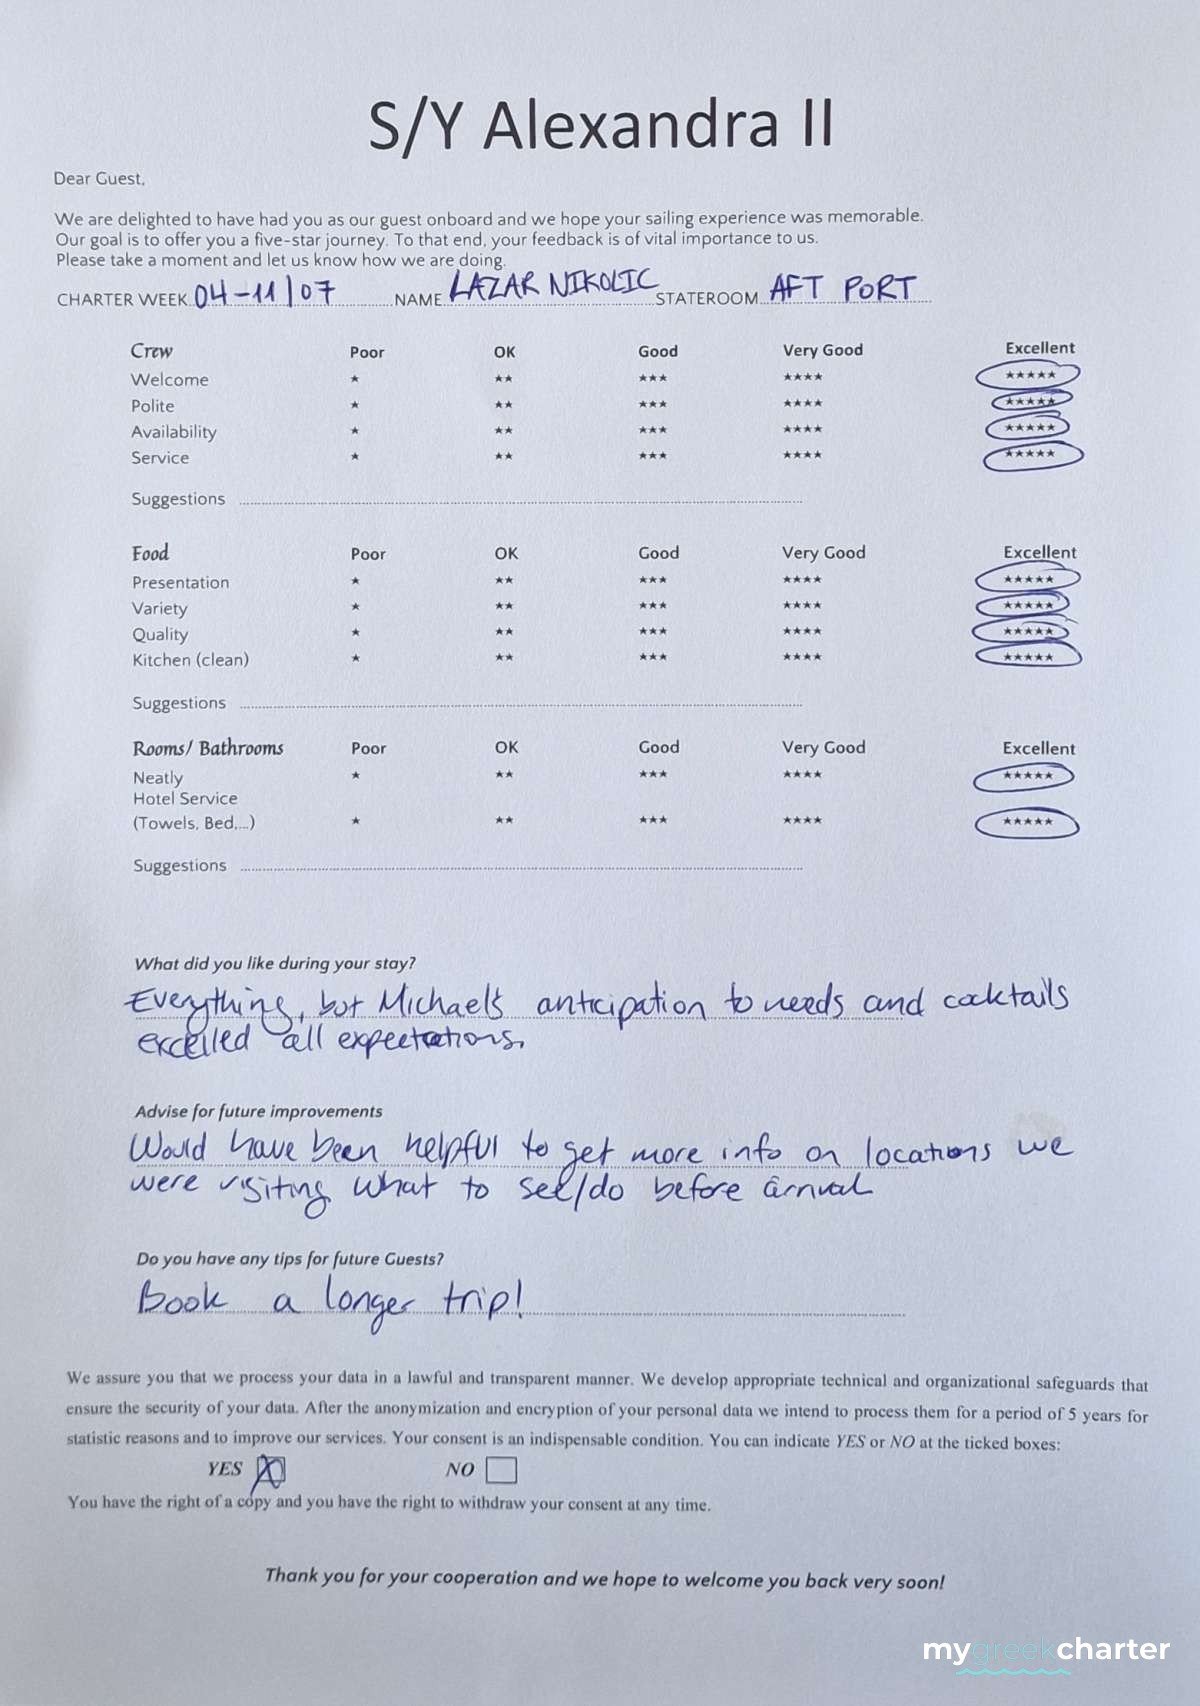 S/Y Alexandra II
Dear Guest,
We are delighted to have had you as our guest onboard and we hope your sailing experience was memorable.
Our goal is to offer you a five-star journey. To that end, your feedback is of vital importance to us.
Please take a moment and let us know how we are doing.
CHARTER WEEK 04-11/07 NAME LAZAR NIKOLIC STATEROOM AFT PORT
Crew Poor OK Good Very Good Excellent
Welcome ★ ★★ ★★★ ★★★★ ★★★★★
Polite ★ ★★ ★★★ ★★★★ ★★★★★
Availability ★ ★★ ★★★ ★★★★ ★★★★★
Service ★ ★★ ★★★ ★★★★ ★★★★★
Suggestions
Food Poor OK Good Very Good Excellent
Presentation ★ ★★ ★★★ ★★★★ ★★★★★
Variety ★ ★★ ★★★ ★★★★ ★★★★★
Quality ★ ★★ ★★★ ★★★★ ★★★★★
Kitchen (clean) ★ ★★ ★★★ ★★★★ ★★★★★
Suggestions
Rooms/ Bathrooms Poor OK Good Very Good Excellent
Neatly ★ ★★ ★★★ ★★★★ ★★★★★
Hotel Service
(Towels, Bed,...) ★ ★★ ★★★ ★★★★ ★★★★★
Suggestions
What did you like during your stay?
Everything, but Michael's anticipation to needs and cocktails
excelled all expectations.
Advise for future improvements
Would have been helpful to get more info on locations we
were visiting what to see/do before arrival
Do you have any tips for future Guests?
Book a longer trip!
We assure you that we process your data in a lawful and transparent manner. We develop appropriate technical and organizational safeguards that
ensure the security of your data. After the anonymization and encryption of your personal data we intend to process them for a period of 5 years for
statistic reasons and to improve our services. Your consent is an indispensable condition. You can indicate YES or NO at the ticked boxes:
YES X NO
You have the right of a copy and you have the right to withdraw your consent at any time.
Thank you for your cooperation and we hope to welcome you back very soon!
mygreekcharter